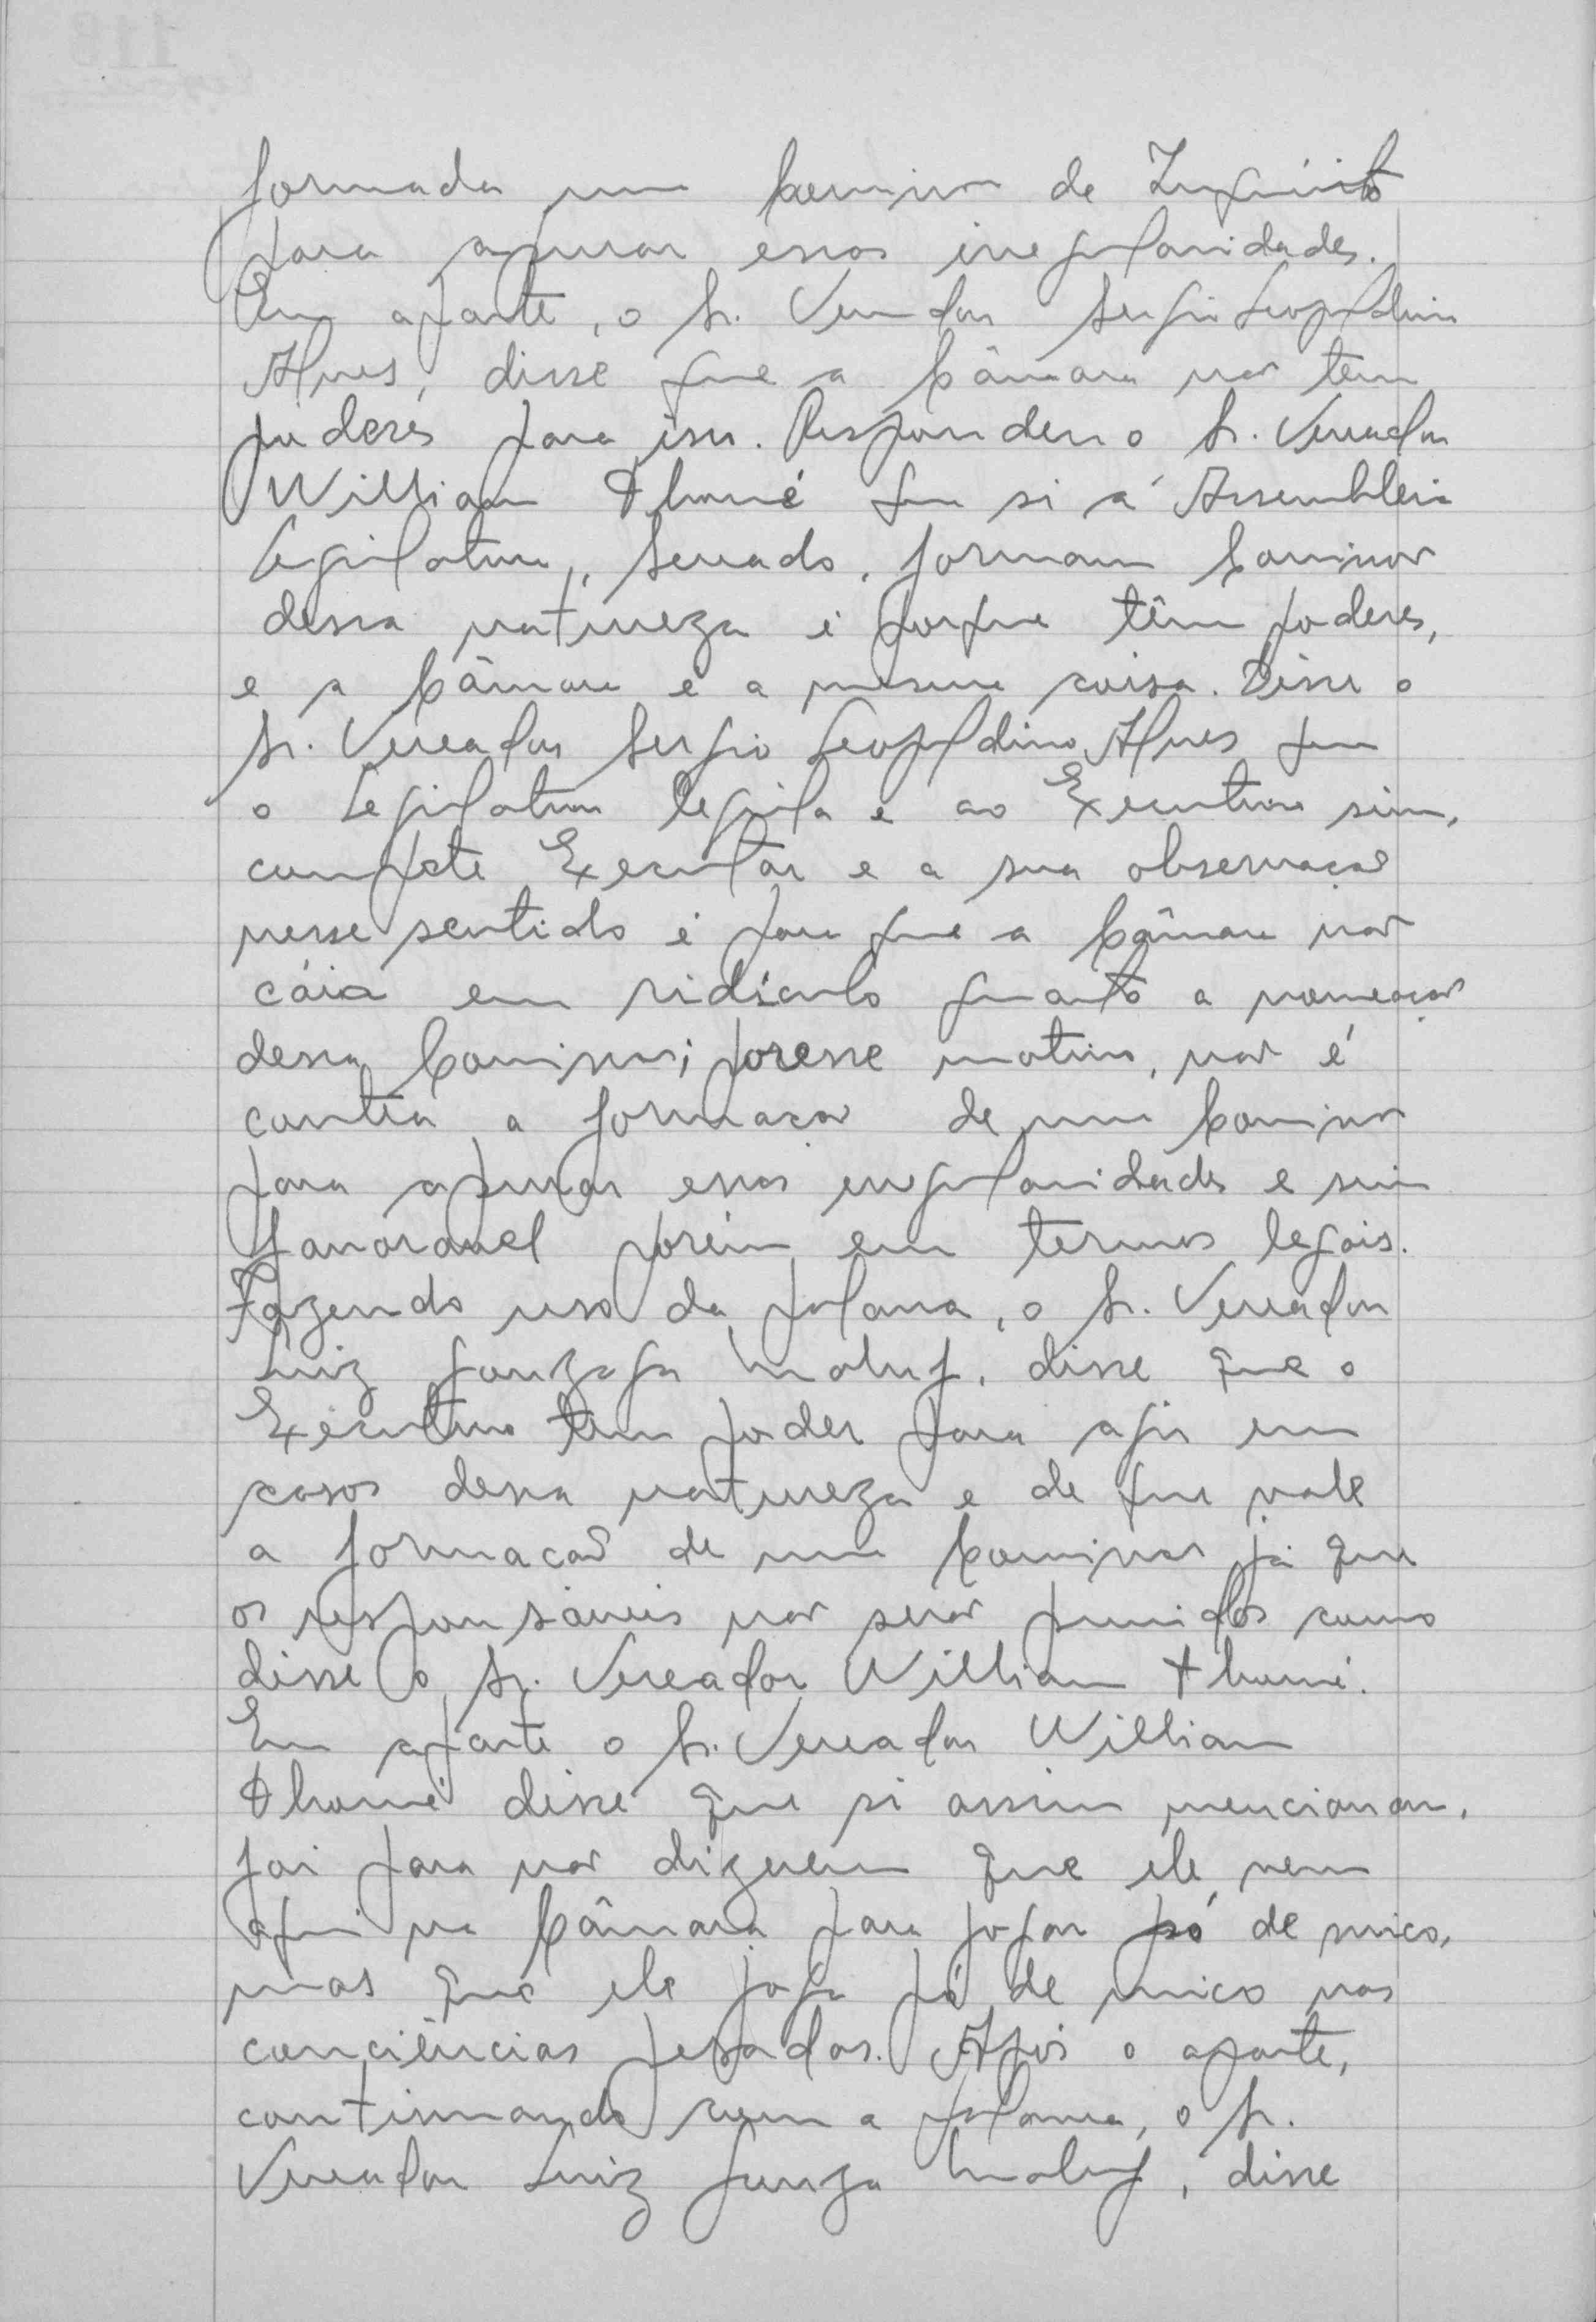 formada uma Comissão de Inquérito
para apurar essas irregularidades.
Em aparte, o Sr. Vereador Sergio Leopoldino
Alves, disse que a Câmara não tem
poderes para isso. Respondeu o Sr. Vereador
William Thomé que si a Assembleia
Legislativa, Senado, formam Comissão
dessa natureza é porque têm poderes,
e a Câmara é a mesma coisa. Disse o
Sr. Vereador Sergio Leopoldino Alves que
o Legislativo legisla e ao Executivo sim,
compete Executar e a sua observação
nesse sentido é para que a Câmara não
cáia em ridículo quanto a nomeação
dessa Comissão; por esse motivo, não é
contra a formação de uma Comissão
para apurar essas irregularidades e sim
favoravel porém em termos legais.
Fazendo uso da palavra, o Sr. Vereador
Luiz Gonzaga Maluf, disse que o
Executivo tem poder para agir em
casos dessa natureza e de que vale
a formação de uma Comissão já que
os responsáveis não serão punidos como
disse o Sr. Vereador William Thomé.
Em aparte o Sr. Vereador William
Thomé disse que si assim mencionou,
foi para não dizerem que ele vem
aqui na Câmara para jogar pó de mico,
mas que ele joga pó de mico nas
conciências pesadas. Após o aparte,
continuando com a palavra, o Sr.
Vereador Luiz Gonzaga Maluf, disse